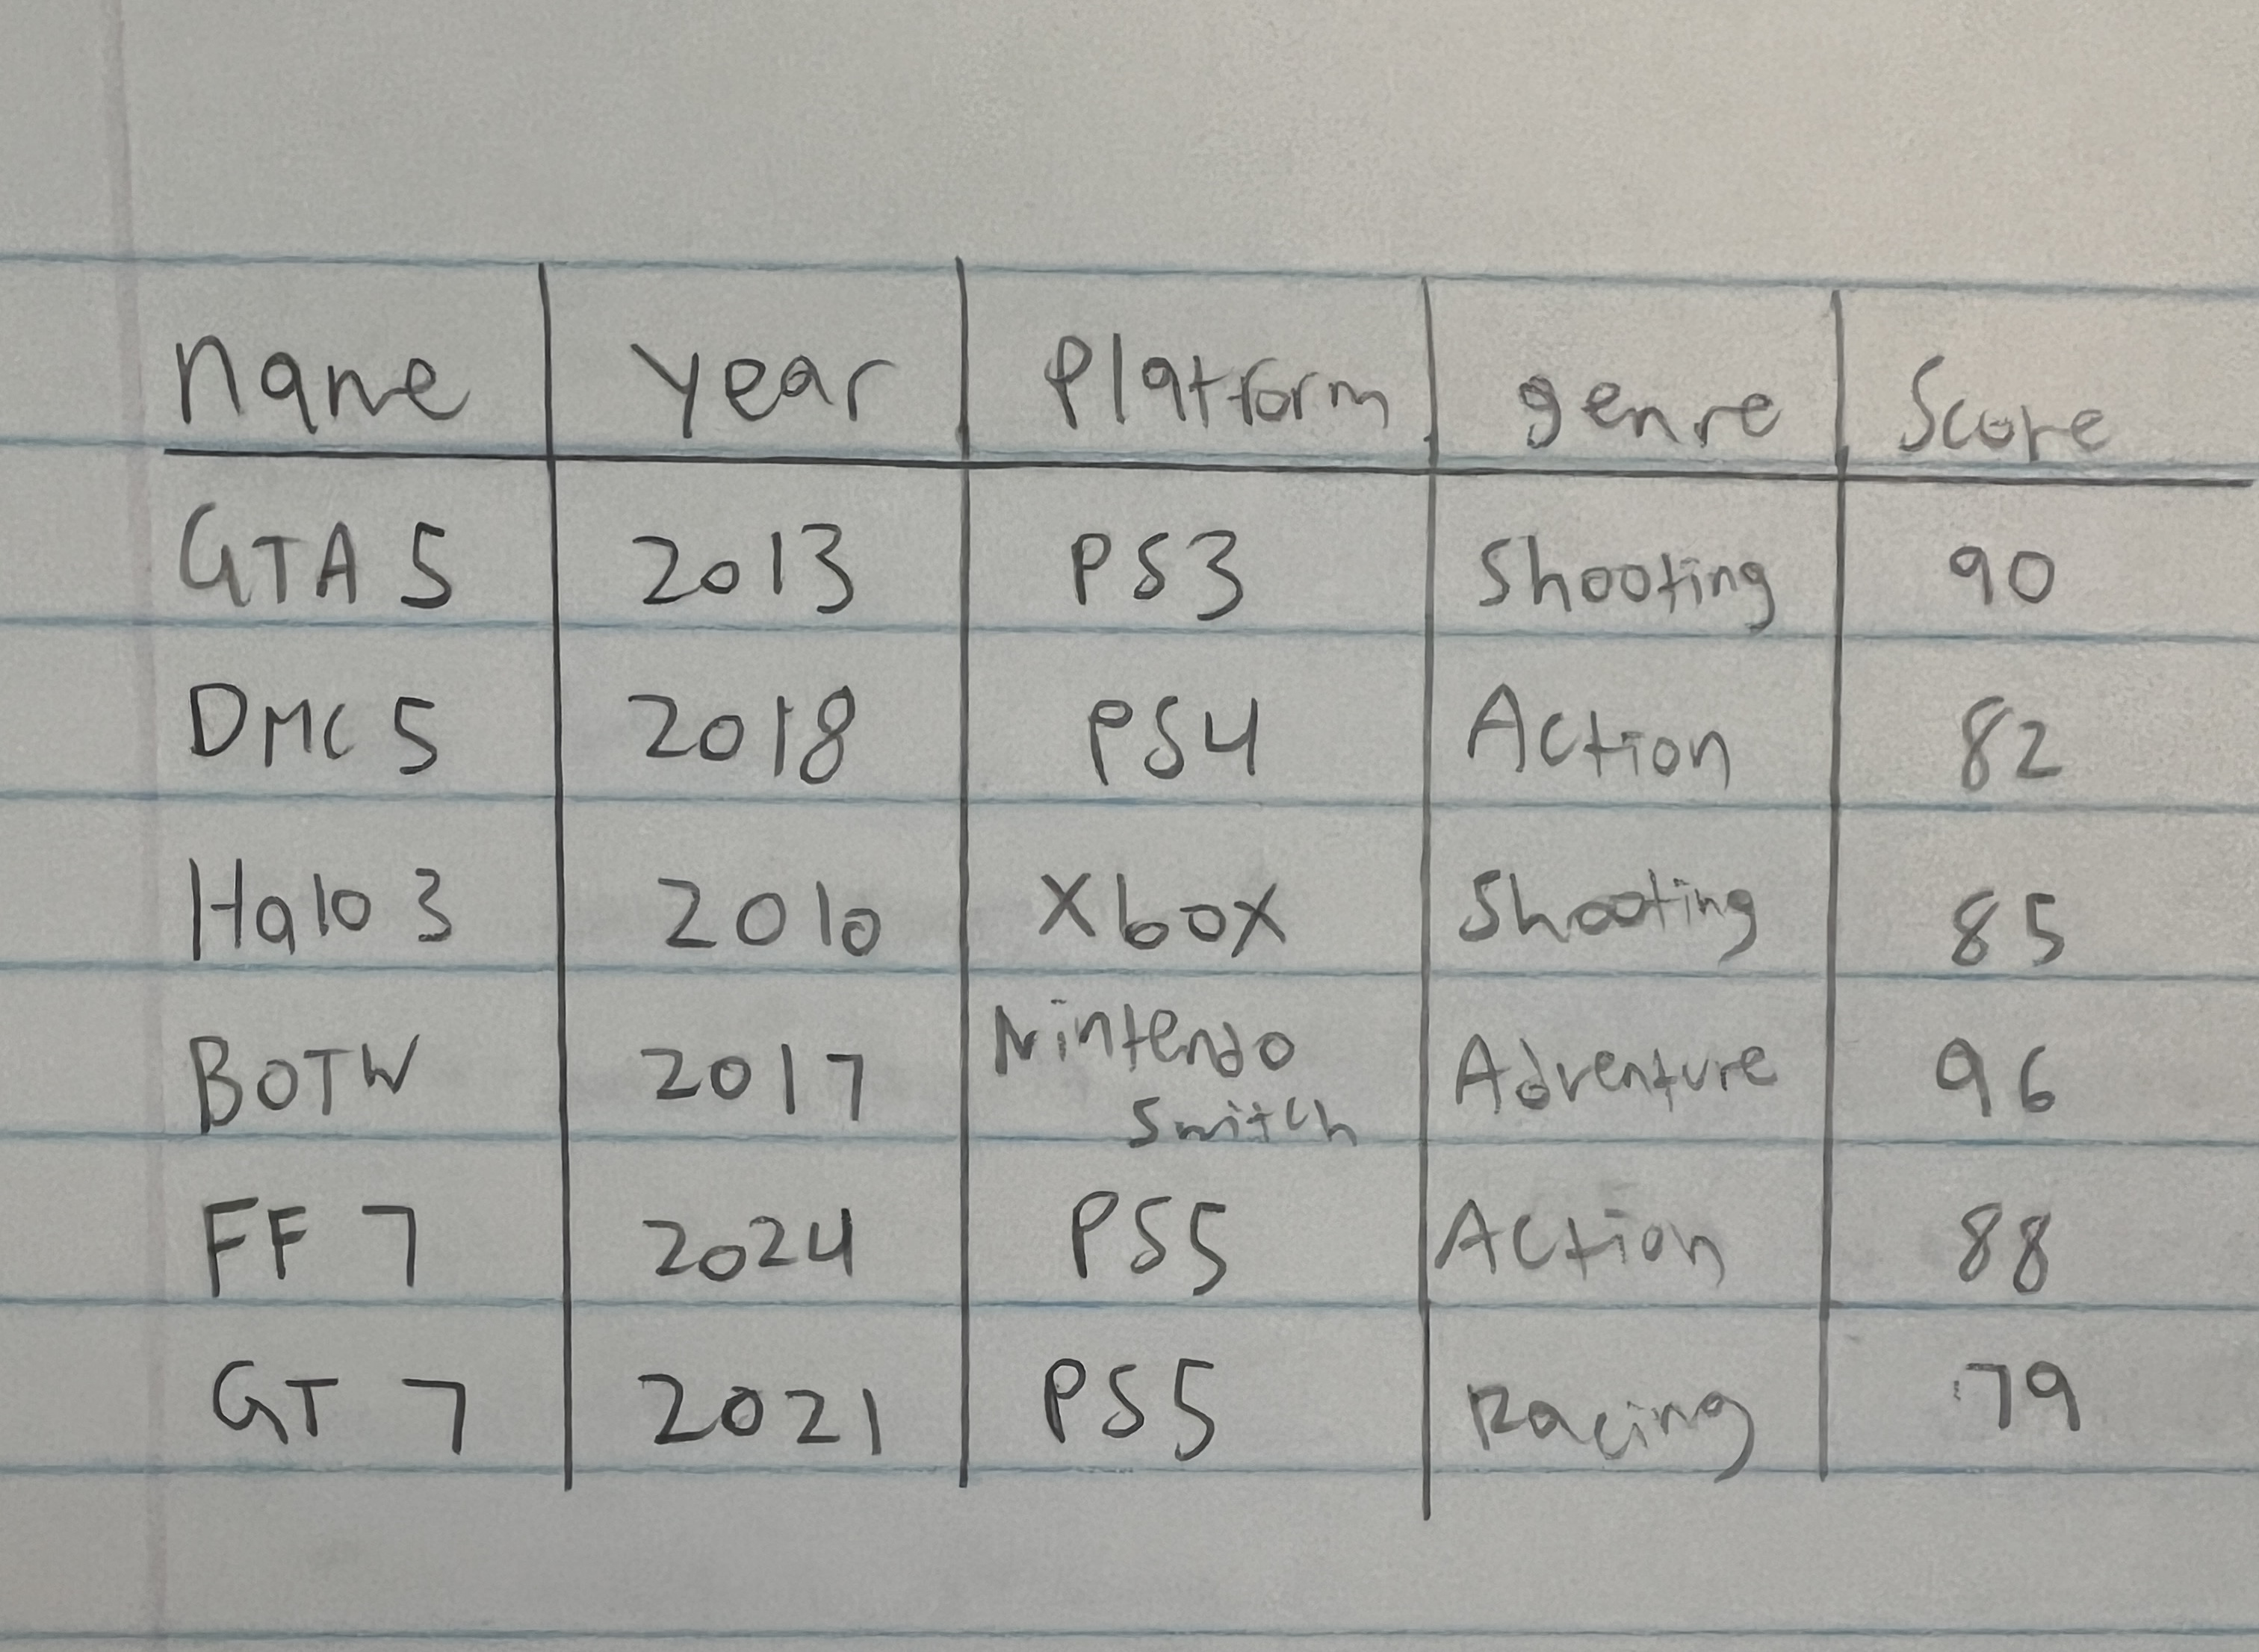 name year Platform genre Score
GTA 5 2013 PS3 Shooting 90
DMC 5 2018 PS4 Action 82
Halo 3 2010 Xbox Shooting 85
BOTW 2017 Nintendo Switch Adventure 96
FF 7 2024 PS5 Action 88
GT 7 2021 PS5 Racing 79